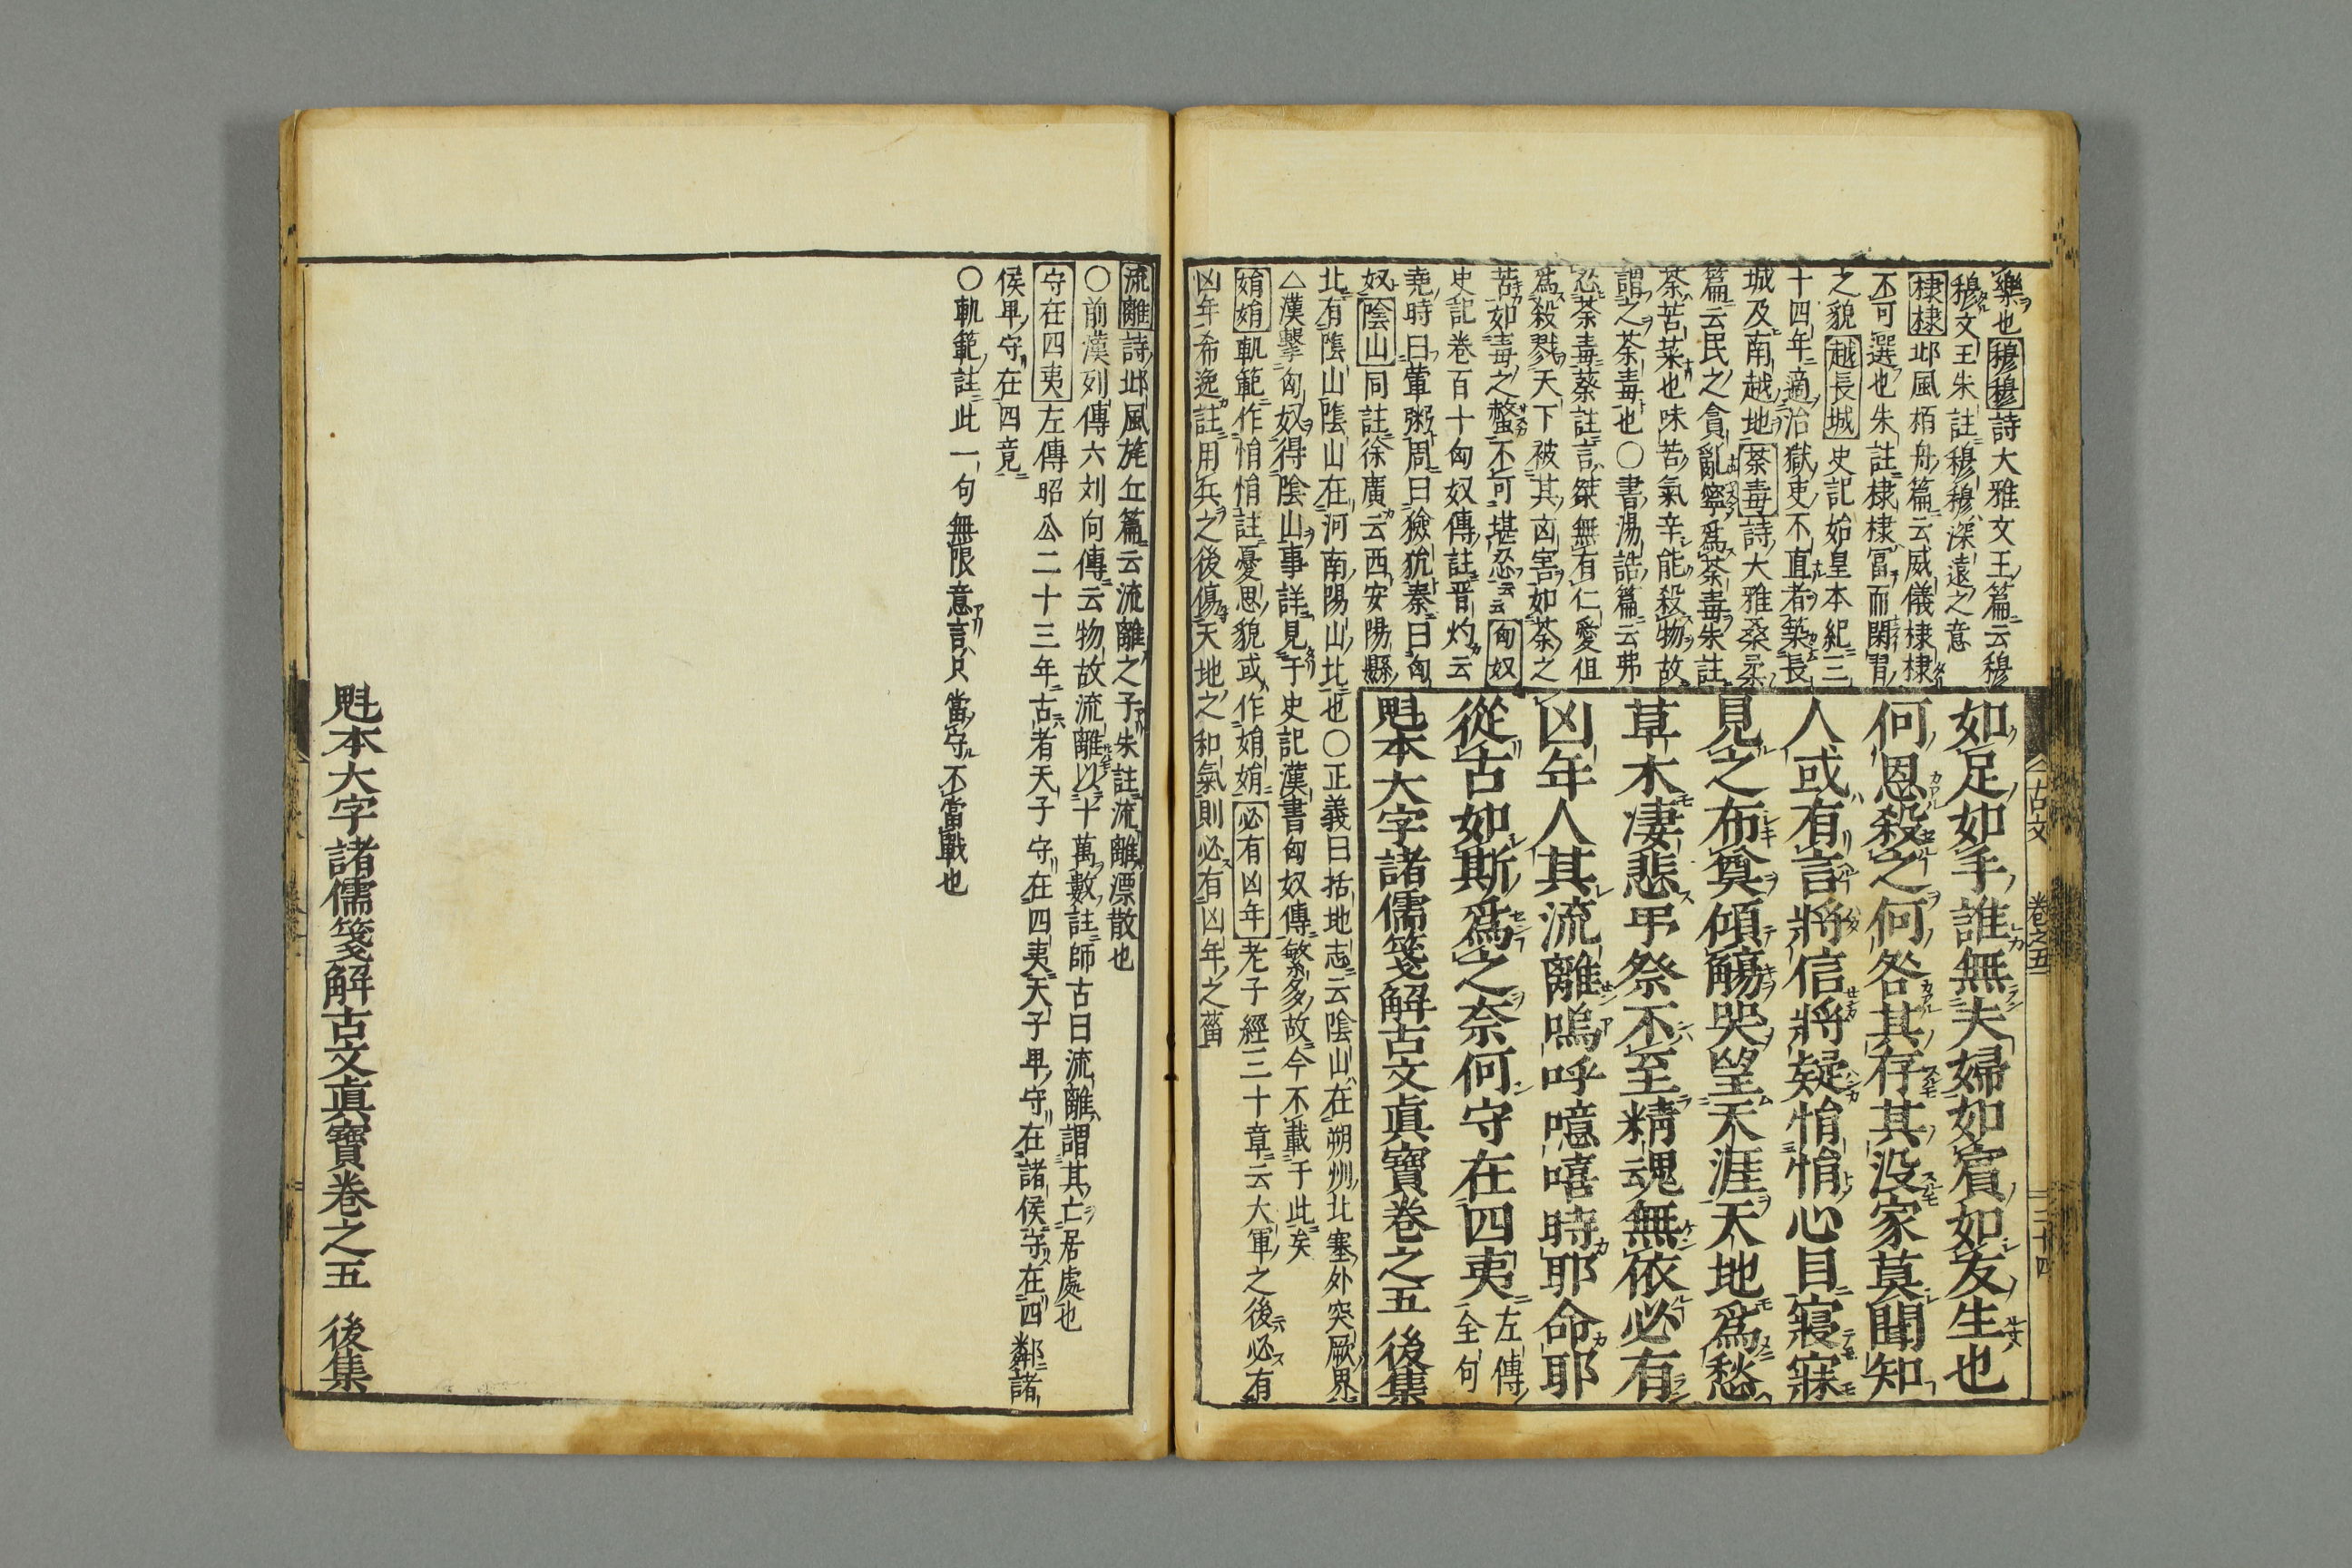 樂也穆穆詩大雅文王篇云穆
穆文王朱註穆穆深遠之意
棣棣邶風栢舟篇云威儀棣棣
不可選也朱註棣棣冨而閑習
之貌越長城史記始皇本紀三
十四年適治獄吏不直者築長
城及南越地荼毒詩大雅桑柔
篇云民之貪亂寧爲荼毒朱註
荼苦菜也味苦氣辛能殺物故
謂之荼毒也○書湯誥篇云弗
忍荼毒蔡註言桀無有仁愛但
爲殺戮天下被其凶害如荼之
苦如毒之螫不可堪忍云云匈奴
史記卷百十匈奴傳註晋灼云
堯時曰葷粥周曰獫狁秦曰匈
奴陰山同註徐廣云西安陽縣
北有陰山陰山在河南陽山北也○正義曰括地志云陰山在朔州北塞外突厥界
△漢擊匈奴得陰山事詳見于史記漢書匈奴傳繁多故今不載于此矣
娟娟軌範作悄悄註憂思貌或作娟娟必有凶年老子經三十章云大軍之後必有
凶年希逸註用兵之後傷天地之和氣則必有凶年之菑
如足如手誰無夫婦如賓如友生也
何恩殺之何咎其存其没家莫聞知
人或有言將信將疑悄悄心目寢寐
見之布奠傾觴哭望天涯天地爲愁
草木凄悲弔祭不至精魂無依必有
凶年人其流離嗚呼噫嘻時耶命耶
從古如斯爲之奈何守在四夷左傳全句
魁本大字諸儒箋解古文眞寶卷之五 後集
古文 卷之五 三十四
流離詩邶風旄丘篇云流離之子朱註流離漂散也
○前漢列傳六刘向傳云物故流離以十萬數註師古曰流離謂其亡居處也
守在四夷左傳昭公二十三年古者天子守在四夷天子卑守在諸侯守在四鄰諸
侯卑守在四竟
○軌範註此一句無限意言只當守不當戰也
魁本大字諸儒箋解古文眞寶卷之五 後集